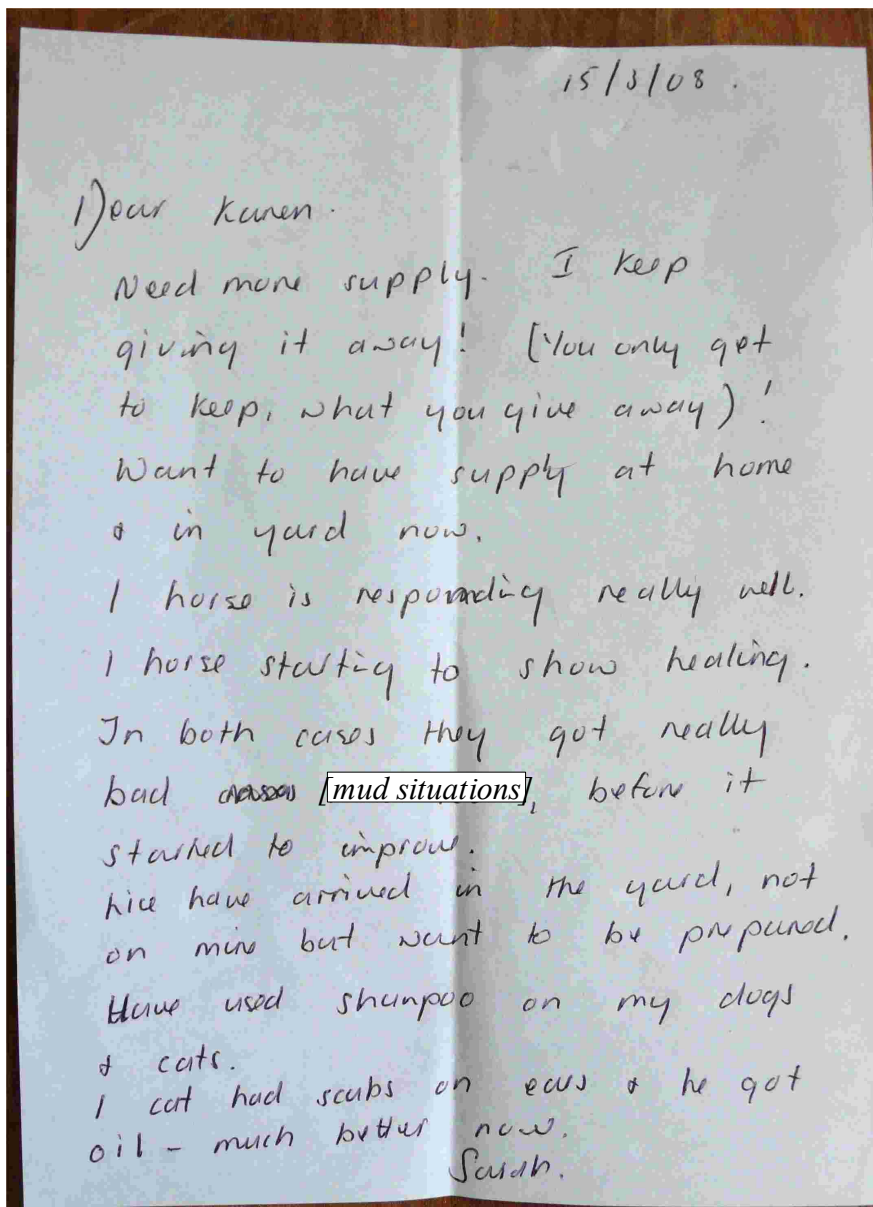 15/3/08.
Dear Karen.
Need more supply. I keep
giving it away! (You only get
to keep, what you give away)!
Want to have supply at home
& in yard now.
1 horse is responding really well.
1 horse starting to show healing.
In both cases they got really
bad [mud situations], before it
started to improve.
Lice have arrived in the yard, not
on mine but want to be prepared.
Have used shampoo on my dogs
& cats.
1 cat had scabs on ears & he got
oil - much better now.
Sarah.